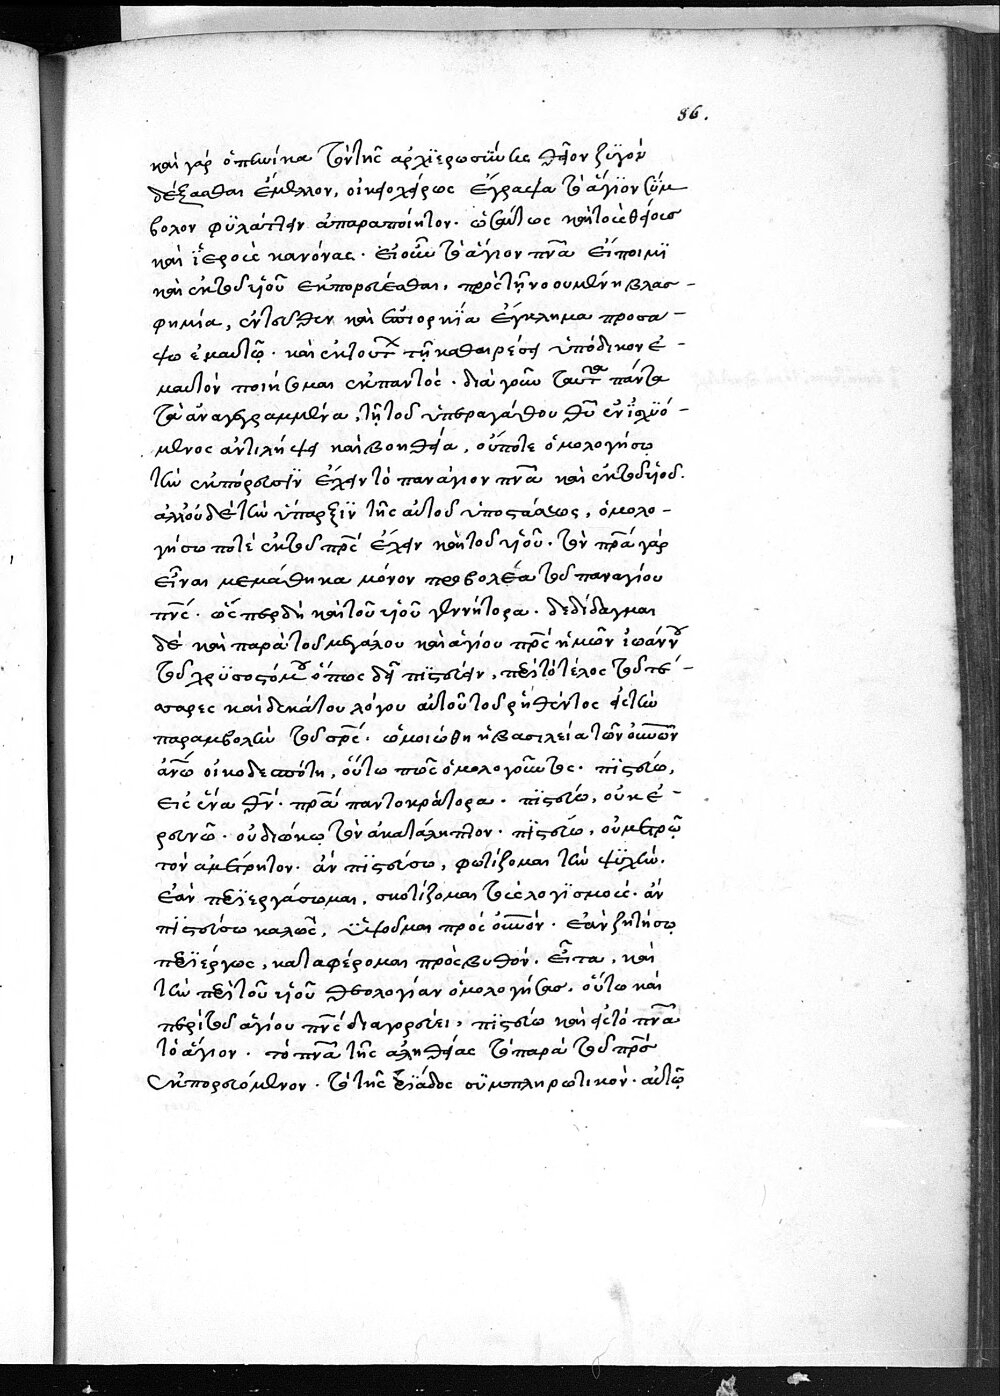 86.
καὶ γὰρ ὁπηνίκα τὸν τῆς ἀρχϊερωσΰνης θεῖον ζϋγὸν
δέξασθαι ἔμελλον, οἰκειοχείρως ἔγραψα τὸ ἅγϊον σΰμ
βολον φϋλάττειν ἀπαραποίητον. ὡσαύτως καὶ τοὺς θείους
καὶ ϊεροὺς κανόνας. εἰ οὖν τὸ ἅγιον πνᾶ εἴποιμϊ
καὶ ἐκ τοῦ υἱοῦ ἐκπορεύεσθαι, πρὸς τῇ νοουμένη βλασ -
φημία, ἐντεῦθεν καὶ ἐπιορκΐα ἔγκλημα προσά -
ψω ἐμαυτῷ. καὶ ἐκ τούτ τῇ καθαιρέσει ὑπόδικον ἐ -
μαυτὸν ποιήσομαι ἐκ παντός. διὰ γοῦν ταῦτα πάντα
τὰ ἀναγεγραμμένα, τῇ τοῦ ὑπεραγάθου θῦ ἐνϊσχϋό -
μενος ἀντιλήψει καὶ βοηθεία, οὔποτε ὁμολογήσω
τὴν ἐκπόρευσιν ἔχειν τὸ πανάγιον πνᾶ καὶ ἐκ τοῦ υἱοῦ.
ἀλλ' οὐδὲ τὴν ὕπαρξϊν τῆς αὐτοῦ ὑποστάσεως, ὁμολο -
γήσω ποτὲ ἐκ τοῦ πρς ἔχειν καὶ τοῦ υἱοῦ. τὸν πρα γὰρ
εἶναι μεμάθηκα μόνον προβολέα τοῦ παναγίου
πνς. ὥσπερ δὴ καὶ τοῦ υἱοῦ γεννήτορα. δεδίδαγμαι
δὲ καὶ παρὰ τοῦ μεγάλου καὶ ἁγίου πρς ἡμῶν ἰωάνν
τοῦ χρϋσοστόμ ὅπως δεῖ πϊστεύειν, περὶ τὸ τέλος τοῦ τε -
σσαρες καὶ δεκάτου λόγου αὐτοῦ τοῦ ῥηθέντος εἰς τὴν
παραβολὴν τοῦ σρς. ὡμοιώθη ἡ βασιλεία τῶν οὐνῶν
ἀνω οἰκοδεσπότη, οὕτω πως ὁμολογοῦντος. πϊστεύω,
εἰς ἕνα θν. πρα παντοκράτορα. πϊστεύω, οὐκ ἐ -
ρευνῶ. οὐ διώκω τὸν ἀκατάληπτον. πϊστεύω, οὐ μετρῶ
τὸν ἀμέτρητον. ἂν πϊστεύσω, φωτίζομαι τὴν ψϋχὴν.
ἐὰν περϊεργάσωμαι, σκοτίζομαι τοὺς λογϊσμούς. ἂν
πϊστεύσω καλῶς, ὑψοῦμαι πρὸς οὐνόν. ἐὰν ζητήσω
περϊέργως, καταφέρομαι πρὸς βυθόν. εἶτα, καὶ
τὴν περὶ τοῦ υἱοῦ θεολογίαν ὁμολογήσας, οὕτω καὶ
περὶ τοῦ ἁγίου πνς διαγορεύει, πϊστεύω καὶ εἰς τὸ πνᾶ
τὸ ἅγιον. τὸ πνᾶ τῆς ἀληθείας τὸ παρὰ τοῦ πρς
ἐκπορευόμενον. τὸ τῆς τρϊάδος σϋμπληρωτικόν. αὐτῷ